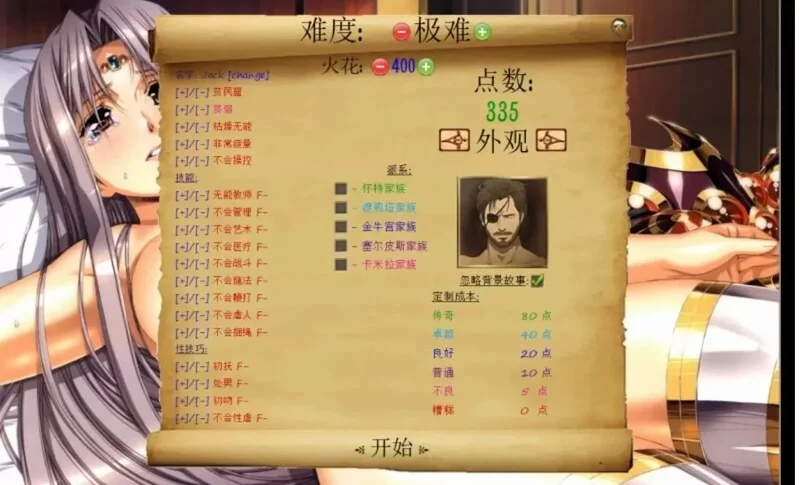 难度: 极难
火花: 400
点数:
335
外观
名字: Jack [change]
[+]/[-] 贫民窟
[+]/[-] 贫弱
[+]/[-] 枯燥无能
[+]/[-] 非常疲量
[+]/[-] 不会操控
技能:
[+]/[-] 无能教师 F-
[+]/[-] 不会管理 F-
[+]/[-] 不会艺术 F-
[+]/[-] 不会医疗 F-
[+]/[-] 不会战斗 F-
[+]/[-] 不会施法 F-
[+]/[-] 不会鞭打 F-
[+]/[-] 不会虐人 F-
[+]/[-] 不会捆绳 F-
性技巧:
[+]/[-] 初抚 F-
[+]/[-] 处男 F-
[+]/[-] 初吻 F-
[+]/[-] 不会性虐 F-
派系:
- 怀特家族
- 金牛宫家族
- 塞尔皮斯家族
- 卡米拉家族
忽略背景故事:
定制成本:
传奇 80 点
卓越 40 点
良好 20 点
普通 10 点
不良 5 点
糟糕 0 点
开始